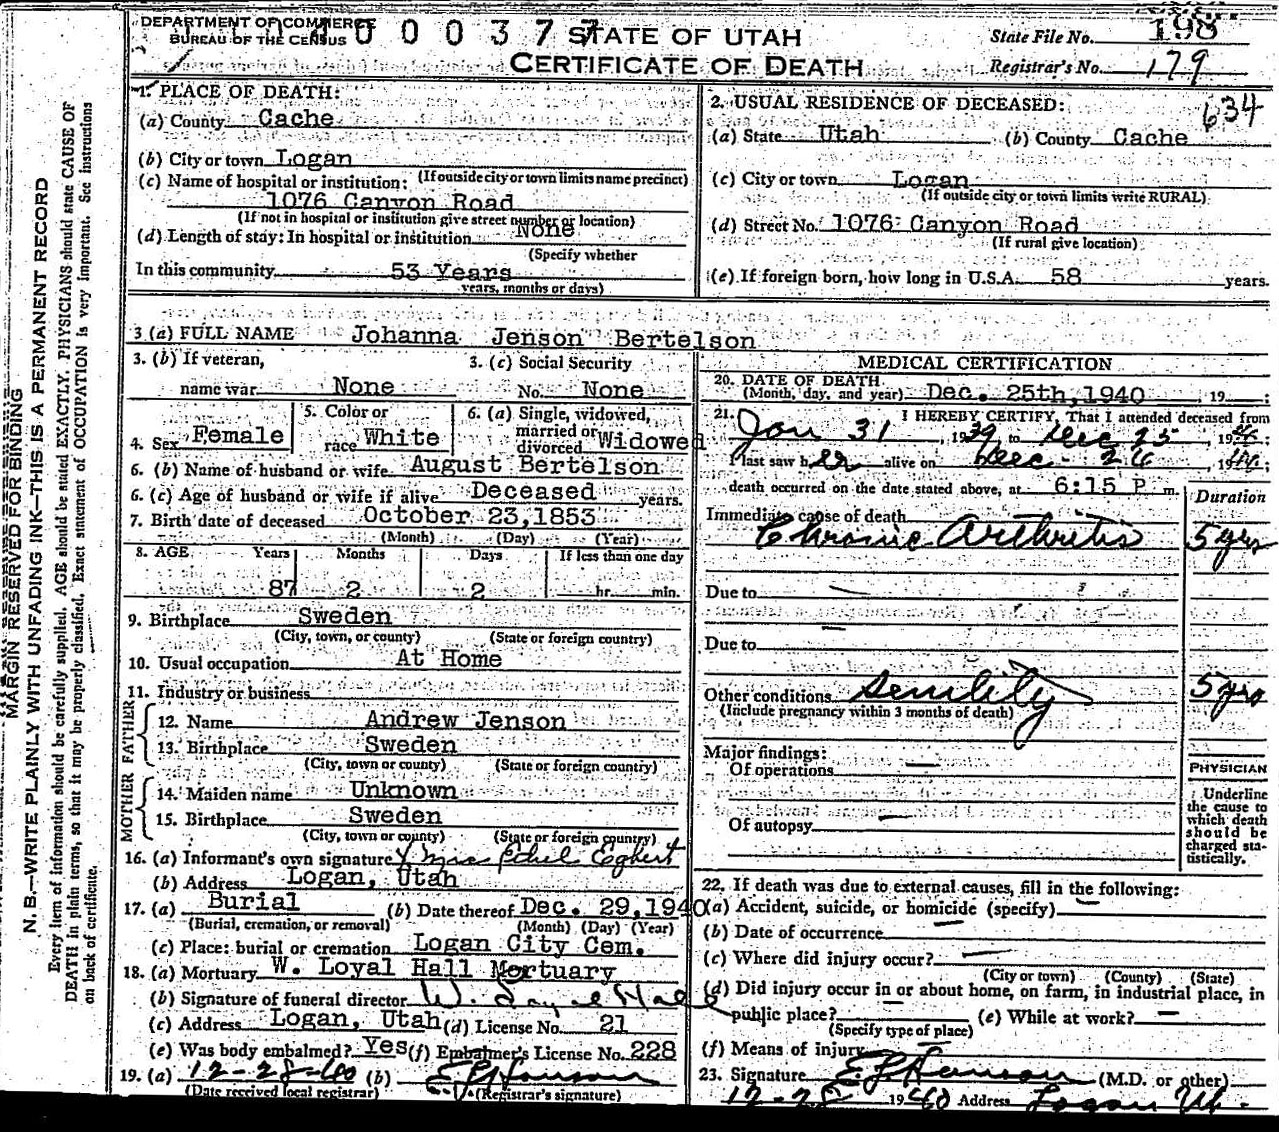 DEPARTMENT OF COMMERCE
BUREAU OF THE CENSUS
0 0 0 3 7 7
STATE OF UTAH
CERTIFICATE OF DEATH
State File No. 198
Registrar's No. 179
634
MARGIN RESERVED FOR BINDING
N. B.—WRITE PLAINLY WITH UNFADING INK—THIS IS A PERMANENT RECORD
Every item of information should be carefully supplied. AGE should be stated EXACTLY. PHYSICIANS should state CAUSE OF
DEATH in plain terms, so that it may be properly classified. Exact statement of OCCUPATION is very important. See instructions
on back of certificate.
1. PLACE OF DEATH:
(a) County Cache
(b) City or town Logan
(If outside city or town limits name precinct)
(c) Name of hospital or institution:
1076 Canyon Road
(If not in hospital or institution give street number or location)
(d) Length of stay: In hospital or institution None
(Specify whether
In this community 53 Years
years, months or days)
2. USUAL RESIDENCE OF DECEASED:
(a) State Utah (b) County Cache
(c) City or town Logan
(If outside city or town limits write RURAL)
(d) Street No. 1076 Canyon Road
(If rural give location)
(e) If foreign born, how long in U.S.A. 58 years.
3 (a) FULL NAME Johanna Jenson Bertelson
3. (b) If veteran,
name war None
3. (c) Social Security
No. None
4. Sex Female
5. Color or
race White
6. (a) Single, widowed,
married or
divorced Widowed
6. (b) Name of husband or wife August Bertelson
6. (c) Age of husband or wife if alive Deceased years.
7. Birth date of deceased October 23, 1853
(Month) (Day) (Year)
8. AGE Years Months Days If less than one day
87 2 2 hr. min.
9. Birthplace Sweden
(City, town, or county) (State or foreign country)
10. Usual occupation At Home
11. Industry or business
FATHER
12. Name Andrew Jenson
13. Birthplace Sweden
(City, town or county) (State or foreign country)
MOTHER
14. Maiden name Unknown
15. Birthplace Sweden
(City, town or county) (State or foreign country)
16. (a) Informant's own signature Mrs Ethel Egbert
(b) Address Logan, Utah
17. (a) Burial (b) Date thereof Dec. 29, 1940
(Burial, cremation, or removal) (Month) (Day) (Year)
(c) Place: burial or cremation Logan City Cem.
18. (a) Mortuary W. Loyal Hall Mortuary
(b) Signature of funeral director W. Loyal Hall
(c) Address Logan, Utah (d) License No. 21
(e) Was body embalmed? Yes (f) Embalmer's License No. 228
19. (a) 12-28-40 (b) E L Hanson
(Date received local registrar) (Registrar's signature)
MEDICAL CERTIFICATION
20. DATE OF DEATH
(Month, day, and year) Dec. 25th, 1940, 19 ;
21. I HEREBY CERTIFY, That I attended deceased from
Jan 31, 1939, to Dec 25, 1940;
I last saw her alive on Dec- , 1940;
death occurred on the date stated above, at 6:15 P m.
Duration
Immediate cause of death
Chronic Arthritis 5 yrs
Due to
Due to
Other conditions Senility 5 yrs
(Include pregnancy within 3 months of death)
Major findings:
Of operations
Of autopsy
PHYSICIAN
Underline
the cause to
which death
should be
charged sta-
tistically.
22. If death was due to external causes, fill in the following:
(a) Accident, suicide, or homicide (specify)
(b) Date of occurrence
(c) Where did injury occur?
(City or town) (County) (State)
(d) Did injury occur in or about home, on farm, in industrial place, in
public place? (e) While at work?
(Specify type of place)
(f) Means of injury
23. Signature E. L. Hanson (M.D. or other)
12-28 1940 Address Logan Ut.